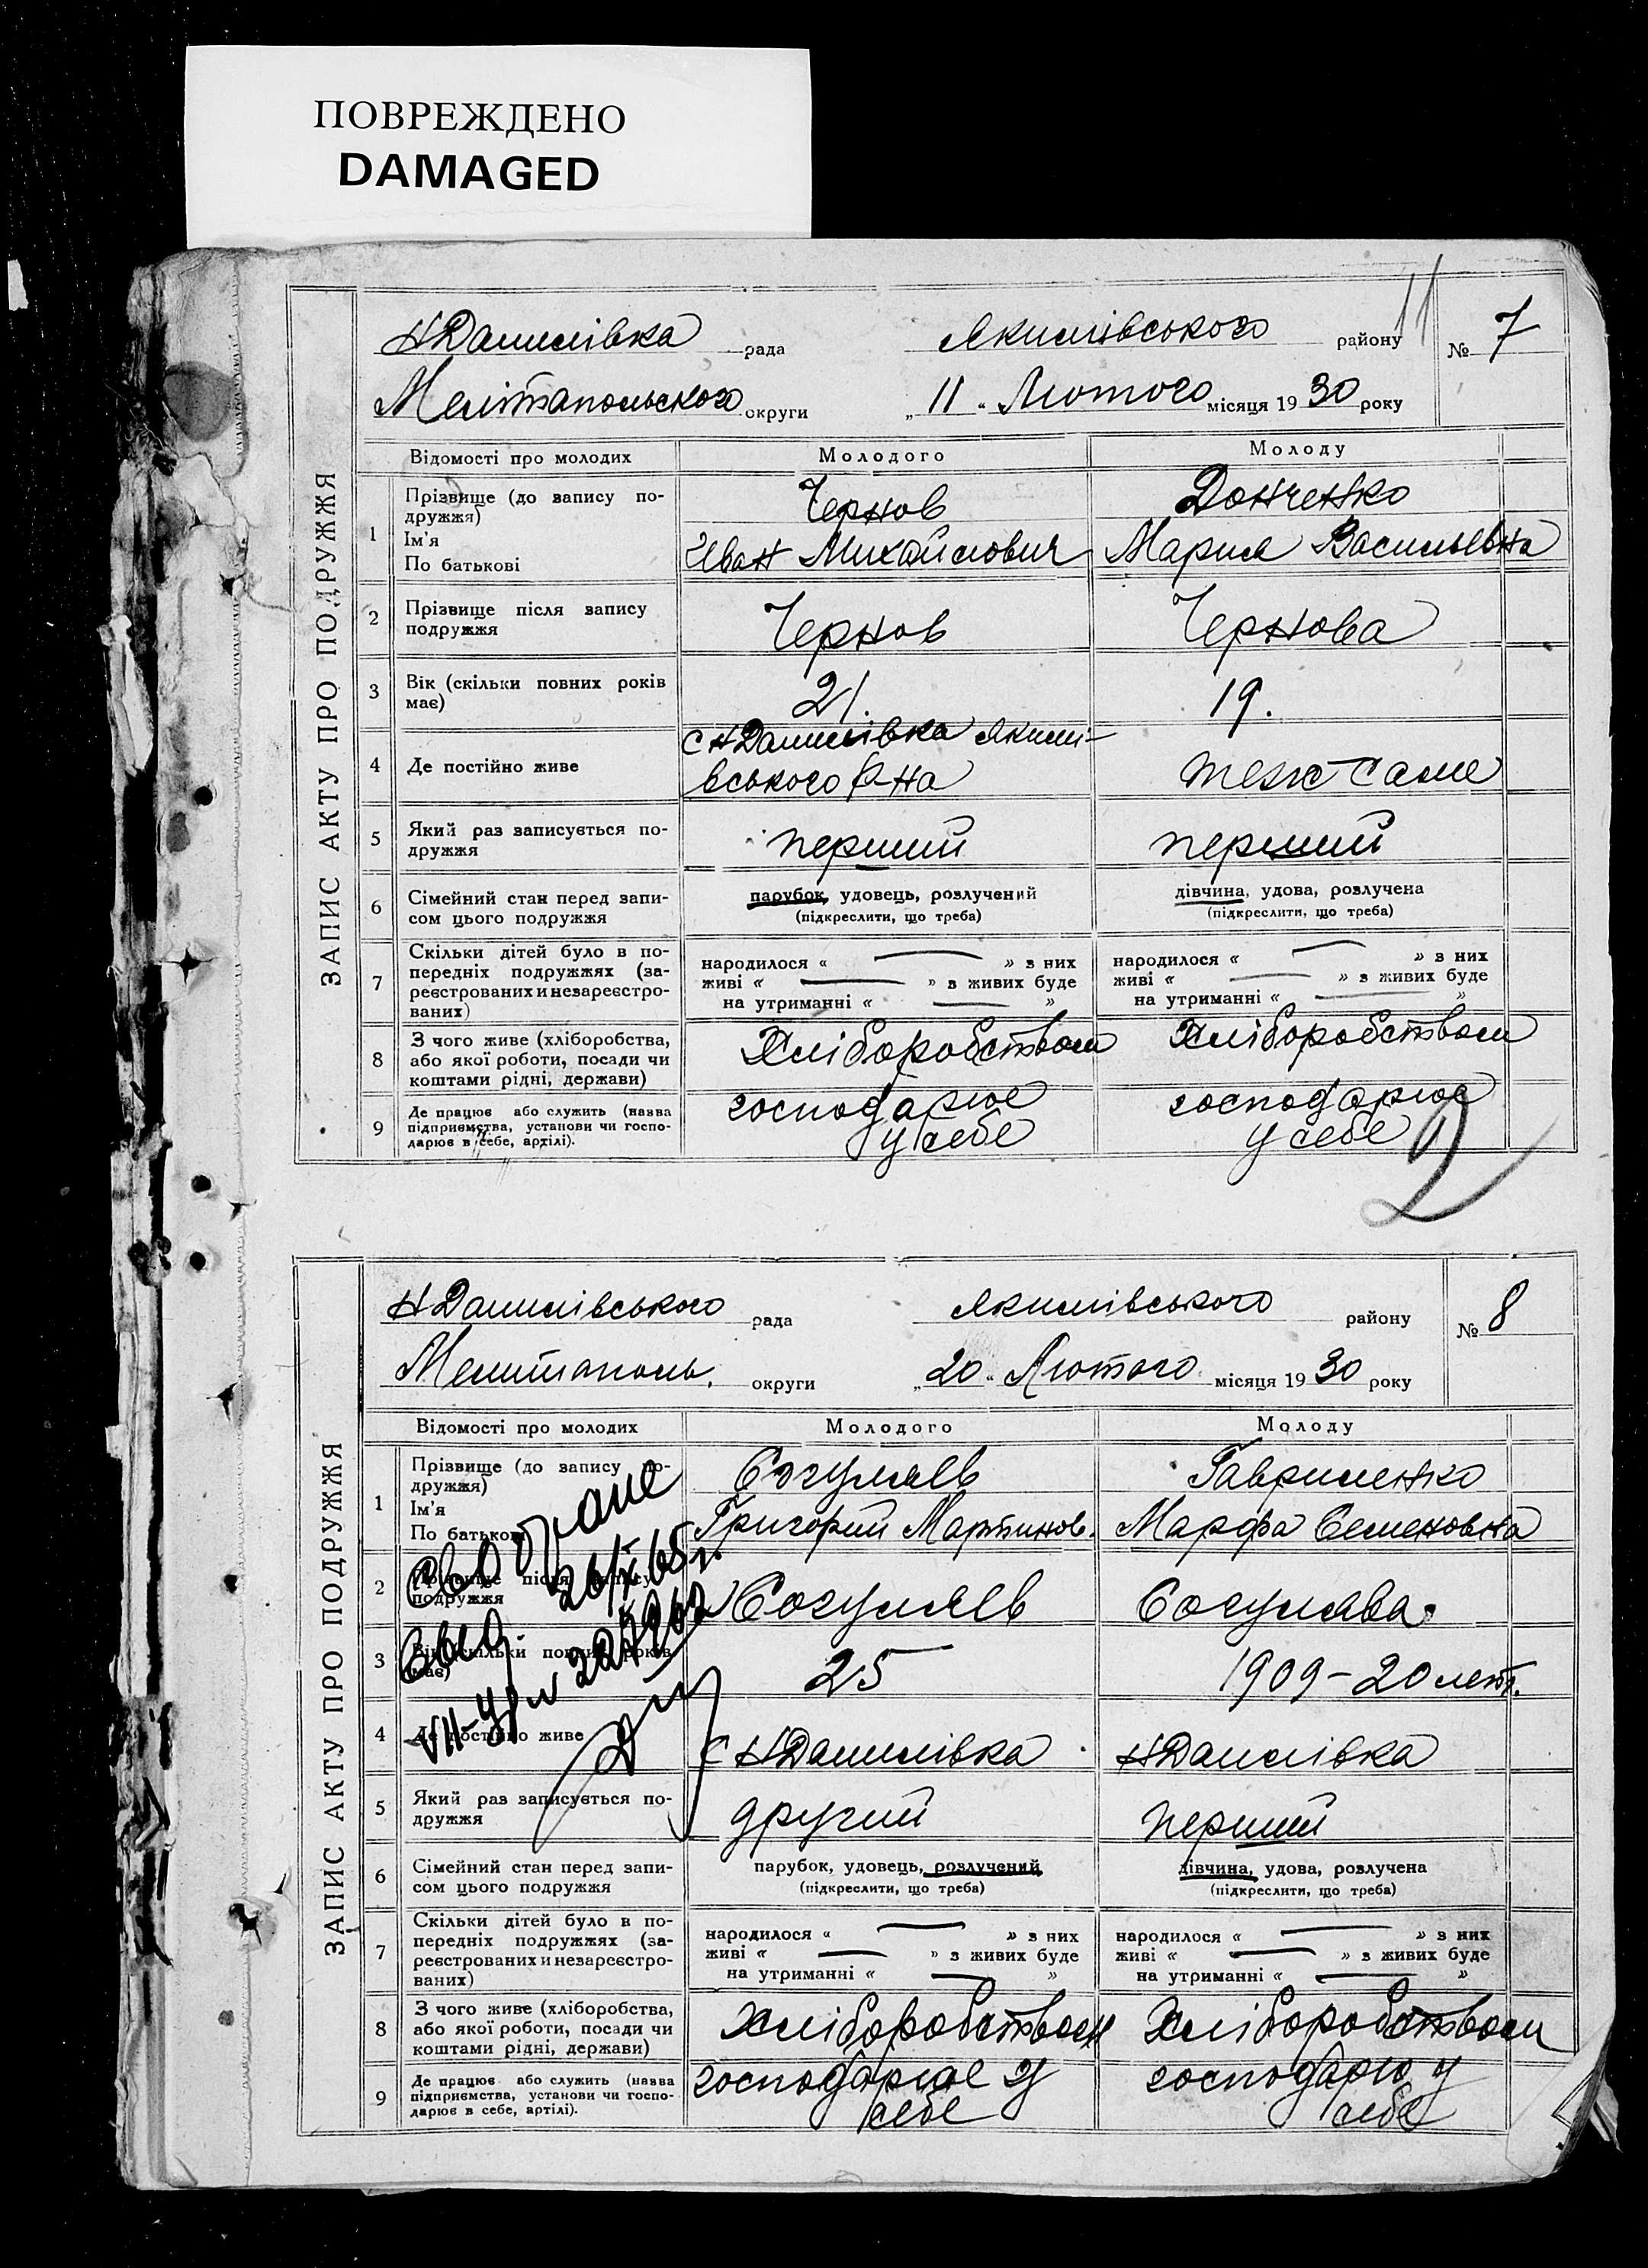 ПОВРЕЖДЕНО
DAMAGED
11
ЗАПИС АКТУ ПРО ПОДРУЖЖЯ
НДанилівка рада Якимівського району № 7
Мелітопольского округи „11“ Лютого місяця 1930 року
Відомості про молодих Молодого Молоду
1 Прізвище (до запису по-
дружжя) Чернов Донченко
Ім'я
По батькові Иван Михайлович Мария Васильевна
2 Прізвище після запису
подружжя Чернов Чернова
3 Вік (скільки повних років
має) 21. 19.
4 Де постійно живе с НДанилівка Якимі-
вського р-на теж саме
5 Який раз записується по-
дружжя перший перший
6 Сімейний стан перед запи-
сом цього подружжя
парубок, удовець, розлучений
(підкреслити, що треба)
дівчина, удова, розлучена
(підкреслити, що треба)
7 Скільки дітей було в по-
передніх подружжях (за-
реєстрованих и незареєстро-
ваних)
народилося « — » з них
живі « — » з живих буде
на утриманні « — »
народилося « — » з них
живі « — » з живих буде
на утриманні « — »
8 З чого живе (хліборобства,
або якої роботи, посади чи
коштами рідні, держави)
Хліборобством Хліборобством
9 Де працює або служить (назва
підприємства, установи чи госпо-
дарює в себе, артілі).
господарює
у себе
господарює
у себе
2
ЗАПИС АКТУ ПРО ПОДРУЖЖЯ
НДанилівського рада Якимівського району № 8
Мелитополь. округи „20“ Лютого місяця 1930 року
Відомості про молодих Молодого Молоду
1 Прізвище (до запису по-
дружжя) Согуляев Гавриленко
Ім'я
По батькові Григорий Мартинов. Марфа Семеновна
2 Прізвище після запису
подружжя Согуляев Согулява
3 Вік (скільки повних років
має) 25 1909-20 лет.
4 Де постійно живе с НДанилівка НДанилівка
5 Який раз записується по-
дружжя другий перший
6 Сімейний стан перед запи-
сом цього подружжя
парубок, удовець, розлучений
(підкреслити, що треба)
дівчина, удова, розлучена
(підкреслити, що треба)
7 Скільки дітей було в по-
передніх подружжях (за-
реєстрованих и незареєстро-
ваних)
народилося « — » з них
живі « — » з живих буде
на утриманні « — »
народилося « — » з них
живі « — » з живих буде
на утриманні « — »
8 З чого живе (хліборобства,
або якої роботи, посади чи
коштами рідні, держави)
Хліборобством Хліборобством
9 Де працює або служить (назва
підприємства, установи чи госпо-
дарює в себе, артілі).
господарює у
себе
господарю у
себе